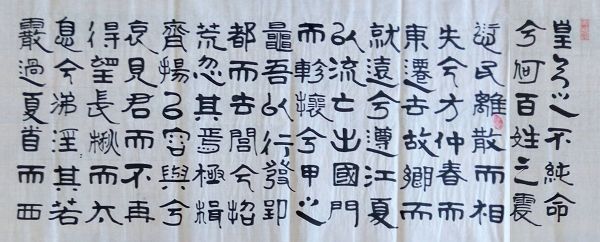 皇天之不純命
兮何百姓之震
愆民離散而相
失兮方仲春而
東遷去故鄉而
就遠兮遵江夏
以流亡出國門
而軫懷兮甲之
鼂吾以行發郢
都而去閭兮招
荒忽其焉極楫
齊揚以容與兮
哀見君而不再
得望長楸而太
息兮涕淫其若
霰過夏首而西